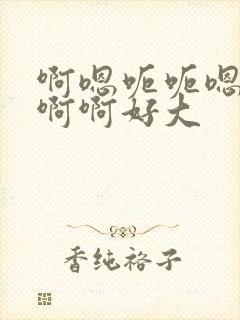 啊嗯呃呃嗯
啊啊好大
香纯裕子